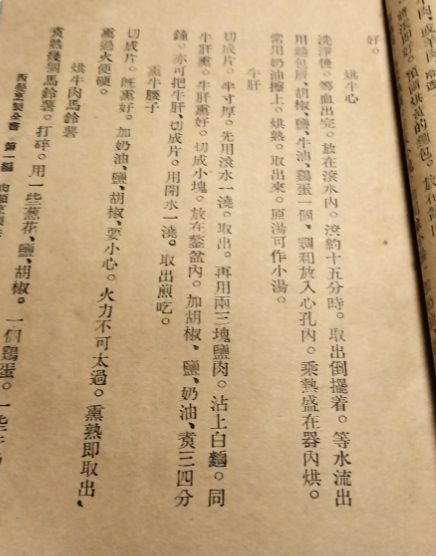 肉、或羊肉
好。
烘牛心
洗淨後。等血出完。放在滾水內。滾約十五分時。取出倒擺着。等水流出
用麵包屑、胡椒、鹽、牛油、鷄蛋一個、調和放入心孔內。乘熱盛在器內烘。
常用奶油擦上。烘熟。取出來。原湯可作小湯。
牛肝
切成片。半寸厚。先用滾水一澆。取出。再用兩三塊鹽肉。沾上白麵。同
牛肝熏。牛肝熏好。切成小塊。放在盆內。加胡椒、鹽、奶油、煑三四分
鐘。亦可把牛肝、切成片。用開水一澆。取出煎吃。
熏牛腰子
切成片。旣熏好。加奶油、鹽、胡椒、要小心。火力不可太過。熏熟即取出、
熏過火便硬。
烘牛肉馬鈴薯
煑熟幾個馬鈴薯。打碎。用一些蔥花、鹽、胡椒。一個鷄蛋。一些
西餐烹製全書 第一編